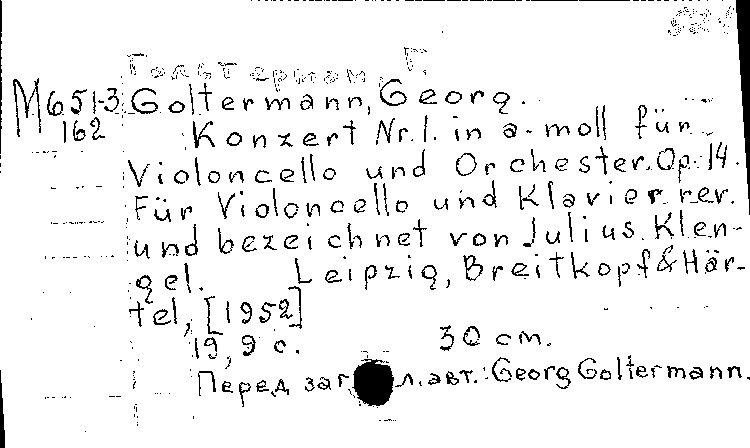 Гольтерман, Г.
М651-3 Goltermann, Georg.
162 Konzert Nr.1. in a-moll für
Violoncello und Orchester. Op. 14.
Für Violoncello und Klavier rev.
und bezeichnet von Julius Klen-
gel. Leipzig, Breitkopf & Här-
tel, [1952]
19, 9 с. 30 cm.
Перед заг. авт.: Georg Goltermann.